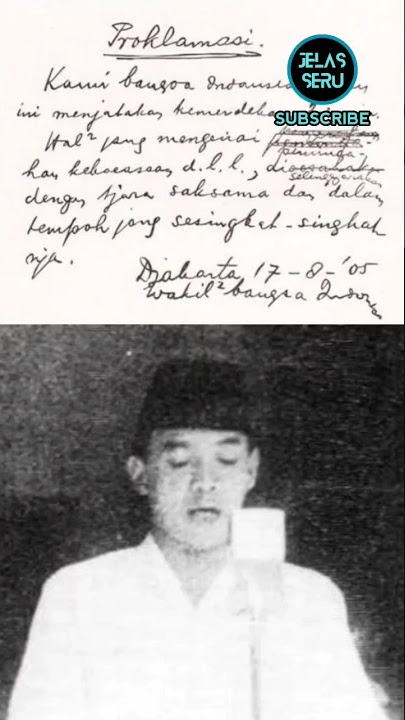 Proklamasi.
JELAS
SERU
SUBSCRIBE
Kami bangsa Indonesia
ini menjatakan kemerdekaan
Hal² jang mengenai
peminda-
han kekoeasaan d.l.l.,
diselenggarakan
dengan tjara saksama dan dalam
tempoh jang sesingkat-singkat
nja.
Djakarta 17-8-'05
Wakil² bangsa Indonesia